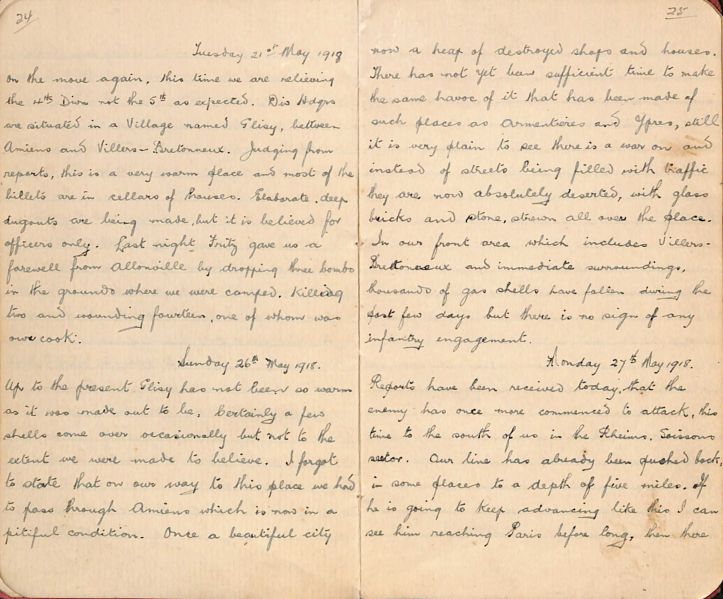 24
Tuesday 21st May 1918
on the move again, this time we are relieving
the 4th Divn not the 5th as expected. Div Hdqrs
are situated in a Village named Glisy, between
Amiens and Villers-Bretonneux. Judging from
reports, this is a very warm place and most of the
billets are in cellars of houses. Elaborate, deep
dugouts are being made, but it is believed for
officers only. Last night Fritz gave us a
farewell from Allonville by dropping three bombs
in the grounds where we were camped. Killing
two and wounding fourteen, one of whom was
our cook.
Sunday 26th May 1918.
Up to the present Glisy has not been so warm
as it was made out to be. Certainly a few
shells come over occasionally but not to the
extent we were made to believe. I forgot
to state that on our way to this place we had
to pass through Amiens which is now in a
pitiful condition. Once a beautiful city
25
now a heap of destroyed shops and houses.
There has not yet been sufficient time to make
the same havoc of it that has been made of
such places as Armentieres and Ypres, still
it is very plain to see there is a war on and
instead of streets being filled with traffic
they are now absolutely deserted, with glass
bricks and stone, strewn all over the place.
In our front area which includes Villers-
Bretonneux and immediate surroundings,
thousands of gas shells have fallen during the
past few days but there is no sign of any
infantry engagement.
Monday 27th May 1918.
Reports have been received today, that the
enemy has once more commenced to attack, this
time to the south of us in the Rheims, Soissons
sector. Our line has already been pushed back,
in some places to a depth of five miles. If
he is going to keep advancing like this I can
see him reaching Paris before long, then there